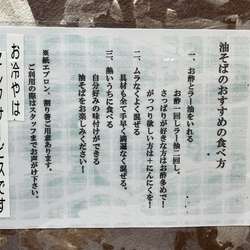 油そばのおすすめの食べ方
一、お酢とラー油をいれる
お酢一回しラー油二回し、
さっぱりが好きな方はお酢多めで！
がっつり欲しい方は＋にんにくを！
二、ムラなくよく混ぜる
具材も全て手早く満遍なく混ぜる。
三、熱いうちに食べる
自分好みの味付けができる
油そばをお楽しみください！
※紙エプロン、割り箸ご用意あります。
ご利用の際はスタッフまでお声がけ下さい。
お冷やは
セルフサービスです